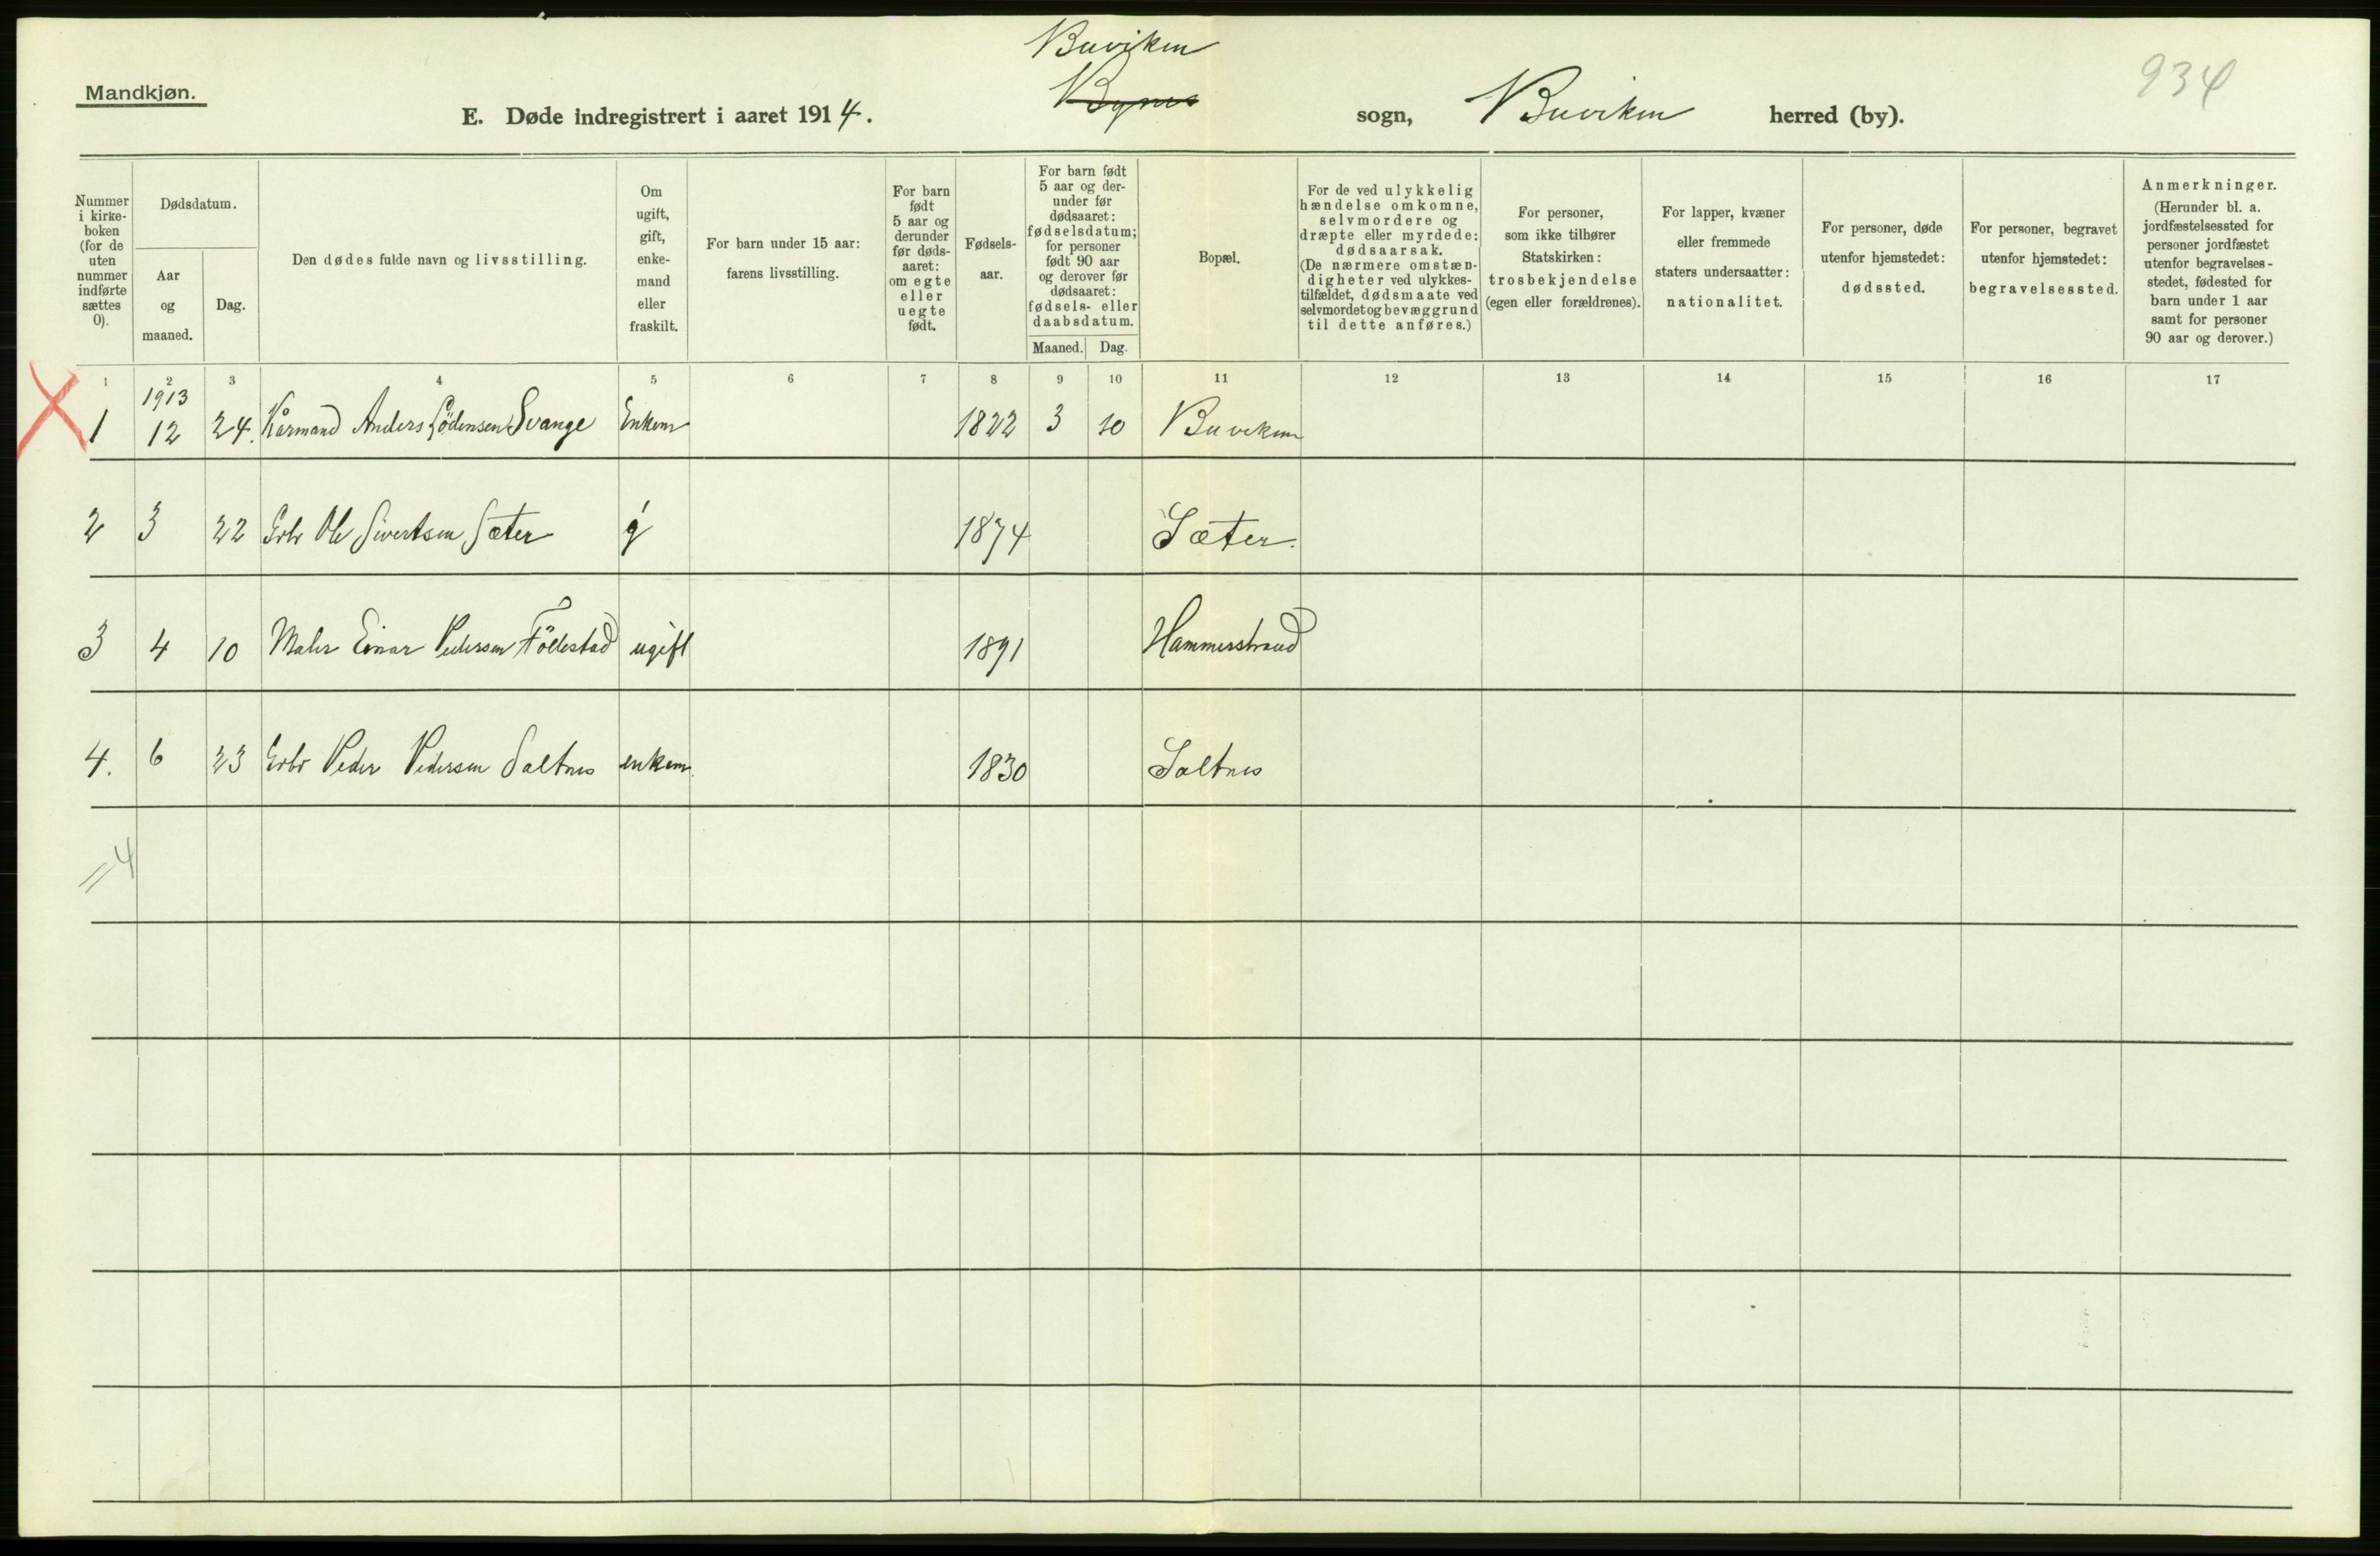 Buviken
Mandkjøn.
934
E. Døde indregistrert i aaret 1914.
Bynes
sogn,
Buviken
herred (by).
Nummer i kirke-boken (for de uten nummer indførte sættes 0).
Dødsdatum.
Aar og maaned.
Dag.
Den dødes fulde navn og livsstilling.
Om ugift, gift, enke-mand eller fraskilt.
For barn under 15 aar: farens livsstilling.
For barn født 5 aar og derunder før døds-aaret: om egte eller uegte født.
Fødsels-aar.
For barn født 5 aar og der-under før dødsaaret: fødselsdatum; for personer født 90 aar og derover før dødsaaret: fødsels- eller daabsdatum.
Maaned.
Dag.
Bopæl.
For de ved ulykkelig hændelse omkomne, selvmordere og dræpte eller myrdede: dødsaarsak. (De nærmere omstæn-digheter ved ulykkes-tilfældet, dødsmaate ved selvmordet og bevæggrund til dette anføres.)
For personer, som ikke tilhører Statskirken: trosbekjendelse (egen eller forældrenes).
For lapper, kvæner eller fremmede staters undersaatter: nationalitet.
For personer, døde utenfor hjemstedet: dødssted.
For personer, begravet utenfor hjemstedet: begravelsessted.
Anmerkninger. (Herunder bl. a. jordfæstelsessted for personer jordfæstet utenfor begravelses-stedet, fødested for barn under 1 aar samt for personer 90 aar og derover.)
1 2 3 4 5 6 7 8 9 10 11 12 13 14 15 16 17
1913
1 12 24. Kårmand Anders Svange Enkem 1822 3 10 Buviken
2 3 22 Ole Sivertsen Sæter g 1874 Sæter.
3 4 10 Maler Einar Pedersen Föllestad ugift 1891 Hammerstrand
4. 6 23 Peder Pedersen Saltnes enkem. 1830 Saltnes
=4